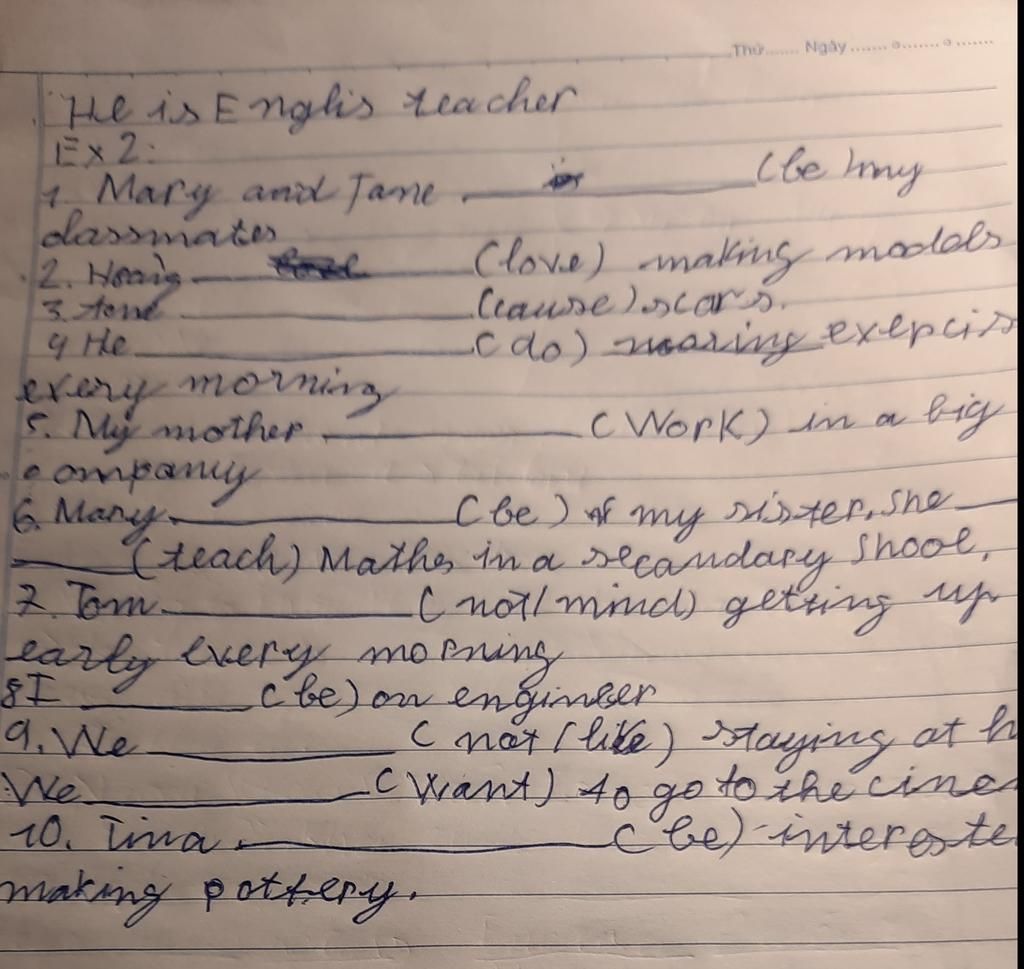 Thứ....... Ngày ....... o....... o .......
He is Englis teacher
Ex 2:
1. Mary and Jane ____________ (be) my
classmates
2. Hoang ____________ (love) making models
3. ____________ (cause) scars.
4 He ____________ (do) exercis
every morning
5. My mother ____________ (Work) in a big
company
6. Mary ____________ (be) my sister. She ____
____ (teach) Maths in a secandary shool.
7. Tom ____________ (not/mind) getting up
early every morning
8 I ________ (be) on engineer
9. We ____________ (not/like) staying at h
We ____________ (Want) to go to the cine
10. Tina ____________ (be) intereste
making pottery.